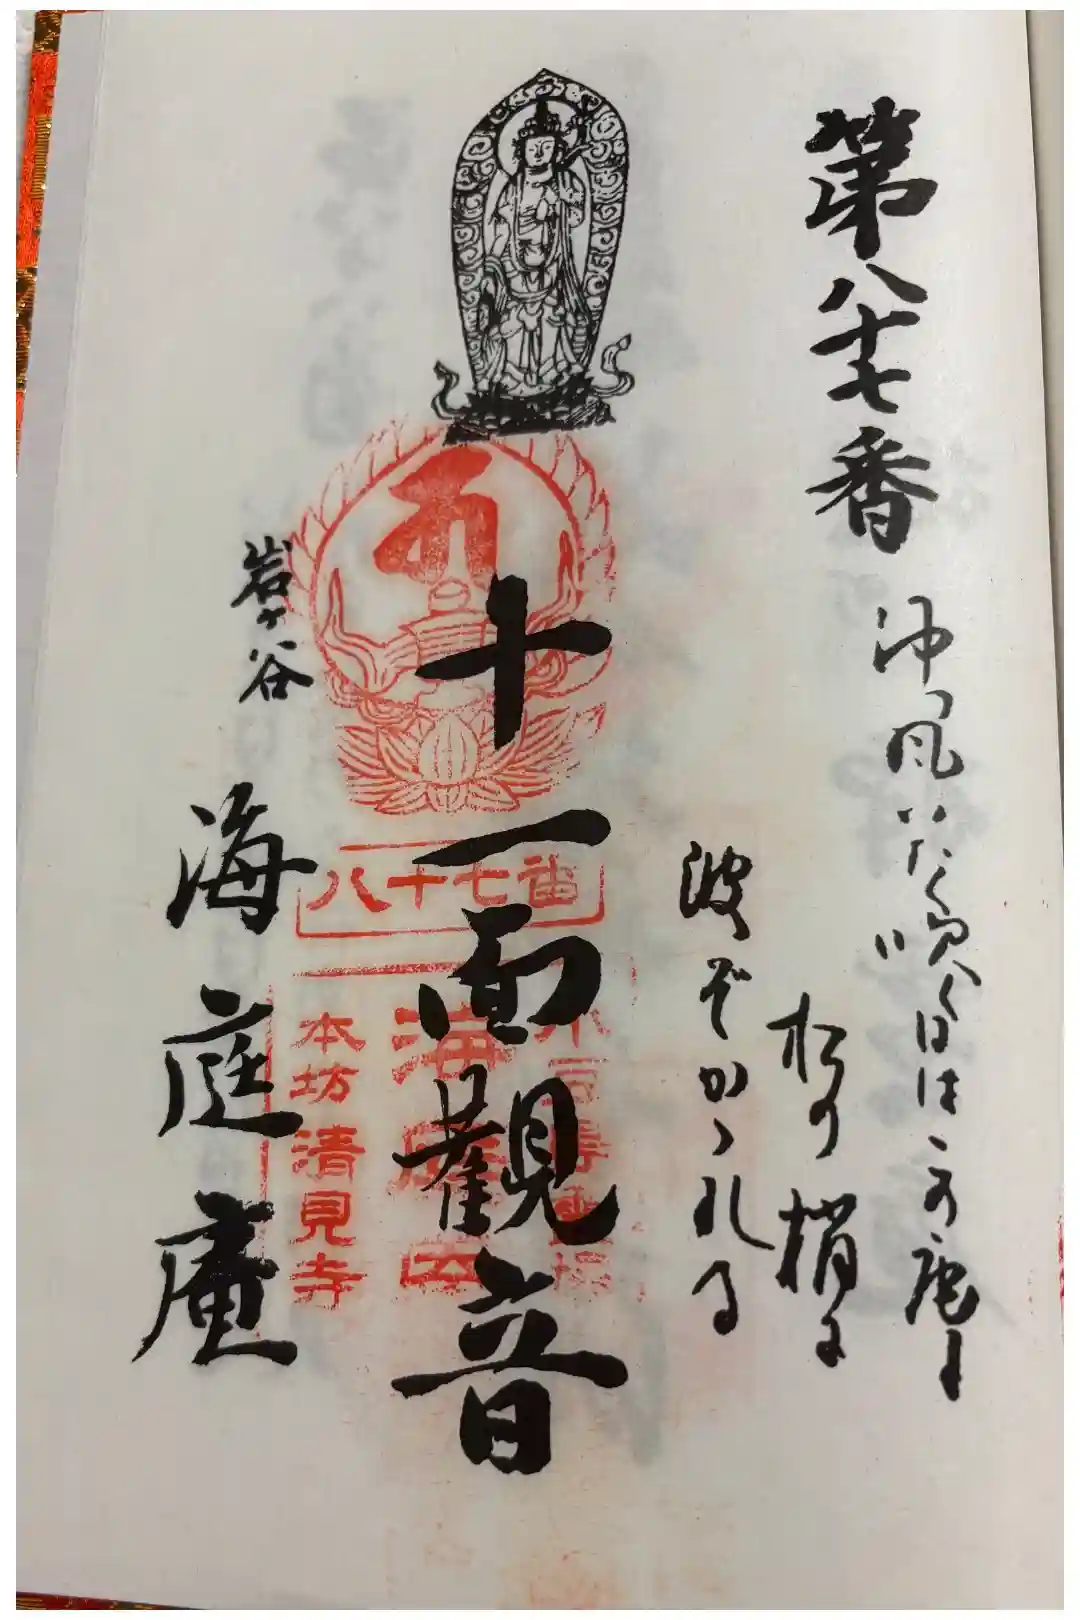 第八十七番
沖つ風いたく吹くらは
松の梢に
波ぞかゝれる
十一面観音
八十七番
本坊 清見寺
岩ヶ谷
海庭庵